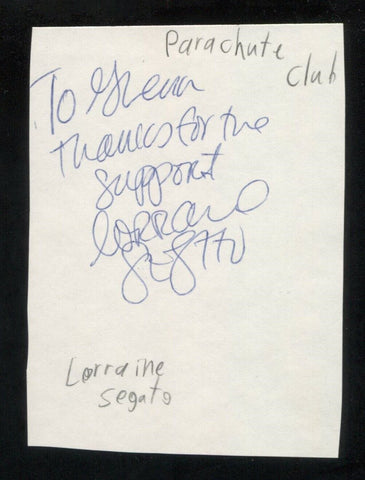 Parachute
Club
To Glenn
Thanks for the
support
Lorraine
Segato
Lorraine
Segato